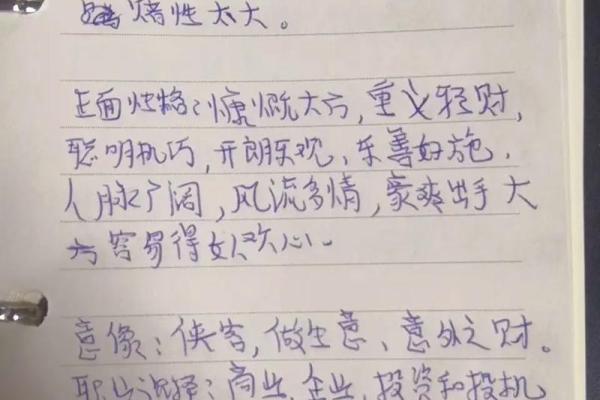 赌性太大。
正面性格：慷慨大方，重义轻财，
聪明机巧，开朗乐观、乐善好施，
人脉广阔，风流多情，豪爽出手大
方容易得女欢心。
意像：侠客，做生意、意外之财。
职业选择：商业，企业，投资和投机